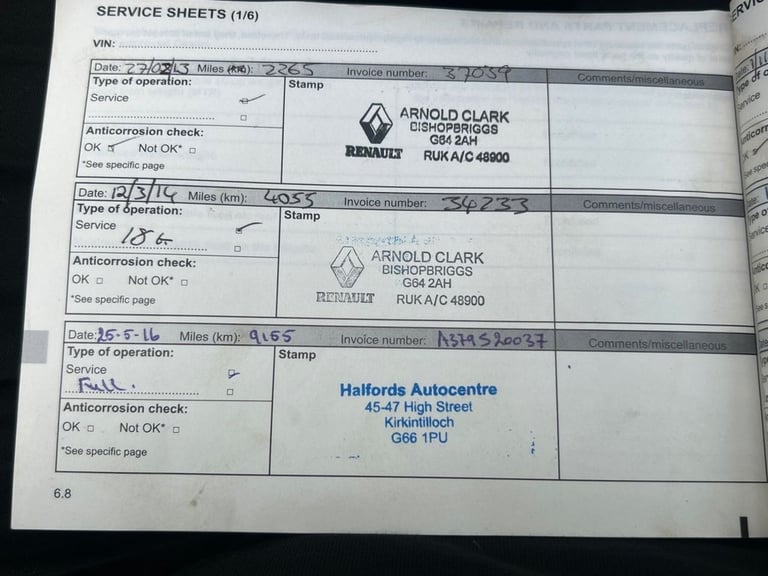 SERVICE SHEETS (1/6)
VIN:
Date: 27/02/13 Miles (km): 2265 Invoice number: 37059 Comments/miscellaneous
Type of operation:
Stamp
Service
ARNOLD CLARK
BISHOPBRIGGS
G64 2AH
RENAULT RUK A/C 48900
Anticorrosion check:
OK Not OK*
*See specific page
Date: 12/3/14 Miles (km): 4055 Invoice number: 34233 Comments/miscellaneous
Type of operation:
Stamp
Service
ARNOLD CLARK
BISHOPBRIGGS
G64 2AH
RENAULT RUK A/C 48900
Anticorrosion check:
OK Not OK*
*See specific page
Date: 25-5-16 Miles (km): 9155 Invoice number: A379520037 Comments/miscellaneous
Type of operation:
Stamp
Service
Full.
Halfords Autocentre
45-47 High Street
Kirkintilloch
G66 1PU
Anticorrosion check:
OK Not OK*
*See specific page
6.8